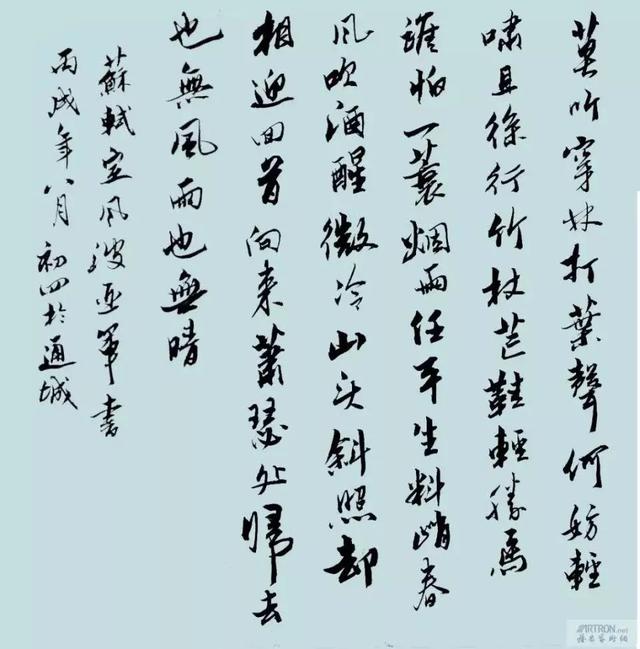 莫听穿林打葉聲何妨輕
嘯且徐行竹杖芒鞋輕勝馬
誰怕一蓑烟雨任平生料峭春
风吹酒醒微冷山头斜照却
相迎回首向来蕭瑟处歸去
也無風雨也無晴
蘇軾定风波亚軍書
丙戌年八月初四於通城
ARTRON.net
雅昌藝術網